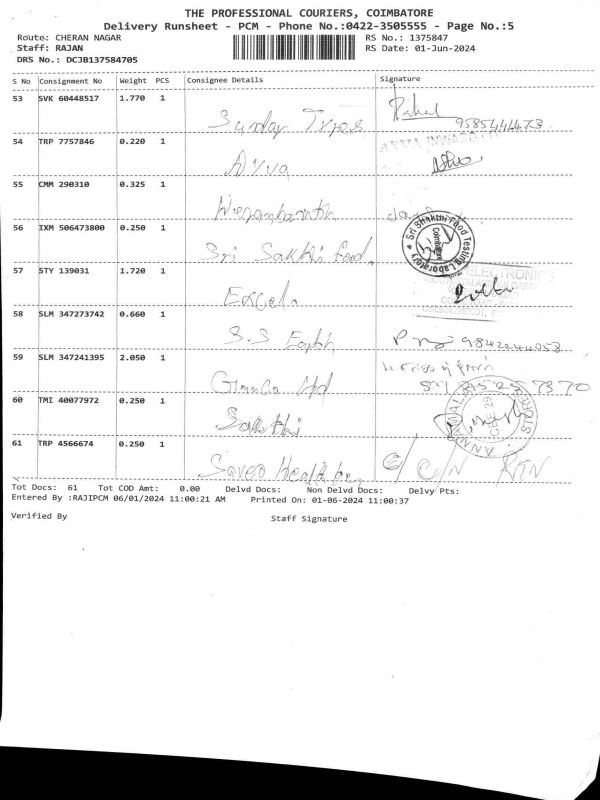 THE PROFESSIONAL COURIERS, COIMBATORE
Delivery Runsheet - PCM - Phone No.:0422-3505555 - Page No.:5
Route: CHERAN NAGAR RS No.: 1375847
Staff: RAJAN RS Date: 01-Jun-2024
DRS No.: DCJB137584705
S No Consignment No Weight PCS Consignee Details Signature
53 SVK 60448517 1.770 1
Sunday Types Rahul 9585444473
54 TRP 7757846 0.220 1
55 CMM 290310 0.325 1
56 IXM 506473800 0.250 1
Sri Sakthi Food Sri Shakthi Food Testing Laboratory Coimbatore
57 STY 139031 1.720 1
Excel ELECTRONICS
58 SLM 347273742 0.660 1
S.S Earth
59 SLM 347241395 2.050 1
Ltd
60 TMI 40077972 0.250 1
Sakthi
61 TRP 4566674 0.250 1
C/N RTN
Tot Docs: 61 Tot COD Amt: 0.00 Delvd Docs: Non Delvd Docs: Delvy Pts:
Entered By :RAJIPCM 06/01/2024 11:00:21 AM Printed On: 01-06-2024 11:00:37
Verified By Staff Signature